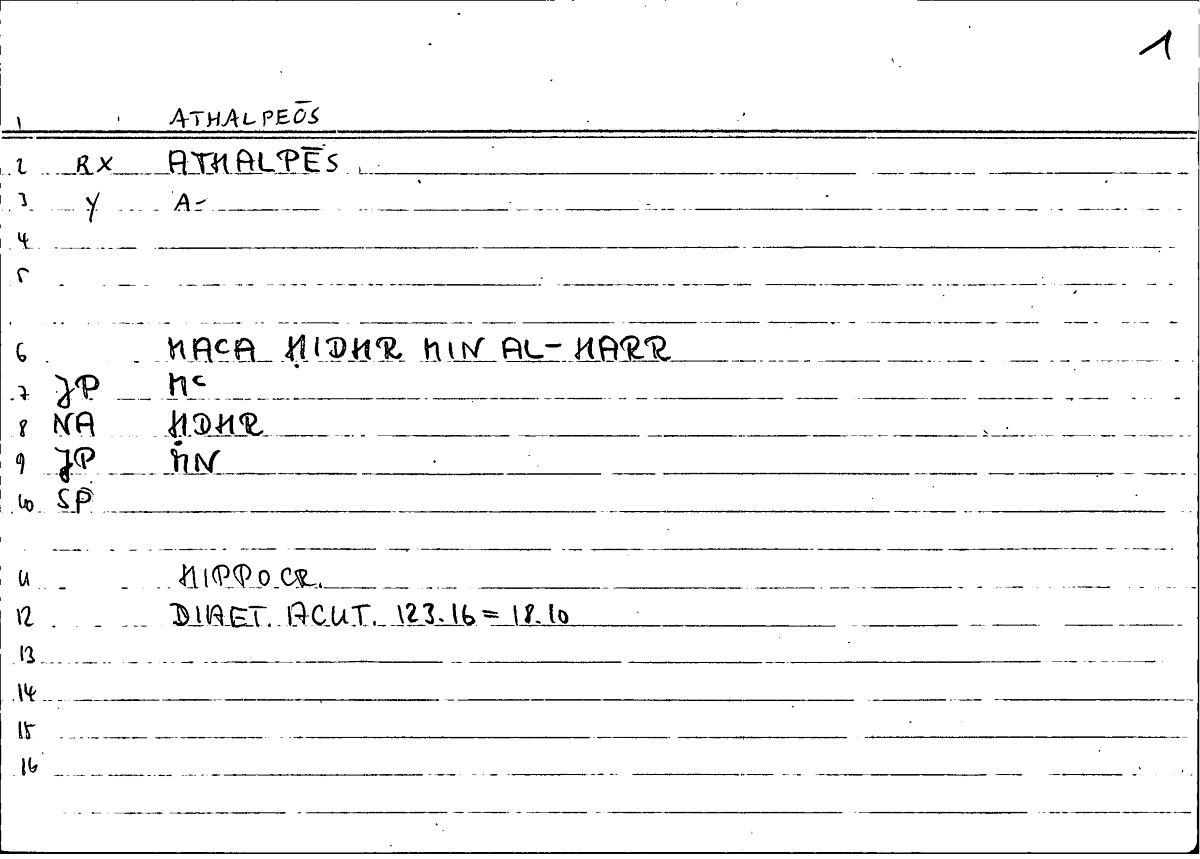 1
1 ATHALPEŌS
2 RX ATHALPĒS
3 Y A-
4
5
6 MACA ḤIDHR MIN AL-HARR
7 JP Mᶜ
8 NA ḤDHR
9 JP MN
10 SP
11 HIPPOCR.
12 DIAET. ACUT. 123.16 = 18.10
13
14
15
16